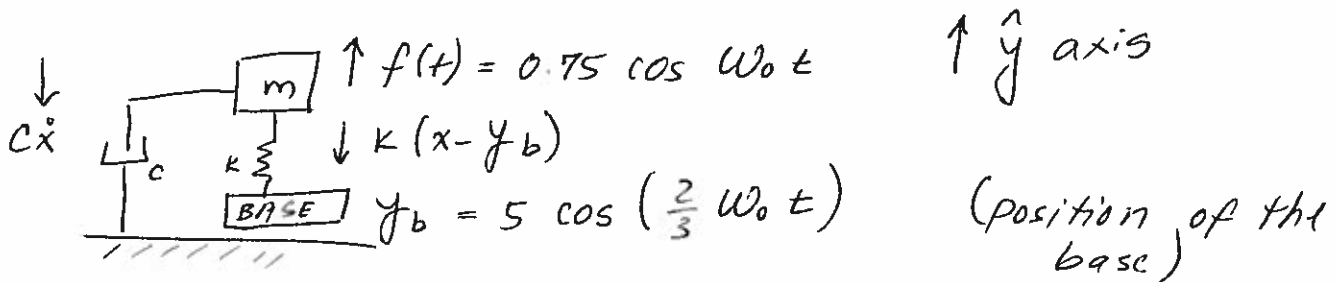 ↑ f(t) = 0.75 cos ω₀ t
↑ ŷ axis
m
↓
cẋ
c
k
↓ k (x - y_b)
BASE
y_b = 5 cos (2/3 ω₀ t)
(position of the
base)